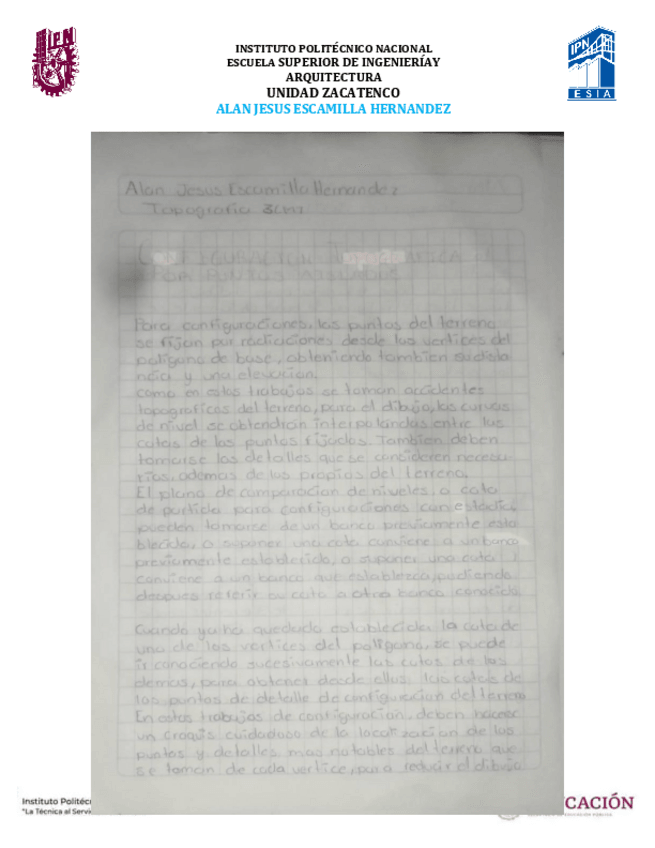 IPN
INSTITUTO POLITÉCNICO NACIONAL
ESCUELA SUPERIOR DE INGENIERÍAY
ARQUITECTURA
UNIDAD ZACATENCO
ALAN JESUS ESCAMILLA HERNANDEZ
IPN
ESIA
Alan Jesus Escamilla Hernandez
Topografia
CONFIGURACION
POR PUNTOS AISLADOS
Para configuraciones, los puntos del terreno
se fijan por radiaciones desde los vertices del
poligono de base, obteniendo tambien su dista
ncia y una elevacion.
Como en estos trabajos se toman accidentes
topograficos del terreno, para el dibujo, las curvas
de nivel se obtendran interpolandas entre las
cotas de los puntos fijados. Tambien deben
tomarse los detalles que se consideren necesa
rios, ademas de los propios del terreno.
El plano de comparacion de niveles, o cota
de partida para configuraciones con estadia,
pueden tomarse de un banco previamente esta
blecido, o suponer una cota conviene a un banco
previamente establecido, o suponer una cota
conviene a un banco que establezca, pudiendo
despues referir su cota a otro banco conocido.
Cuando ya ha quedado establecida la cota de
uno de los vertices del poligono, se puede
ir conociendo sucesivamente las cotas de los
demas, para obtener desde ellos las cotas de
los puntos de detalle de configuracion del terreno
En estos trabajos de configuracion, deben hacerse
un croquis cuidadoso de la localizacion de los
puntos y detalles mas notables del terreno que
se toman de cada vertice, para reducir el dibujo
Instituto Politéc
"La Técnica al Servic
CACIÓN